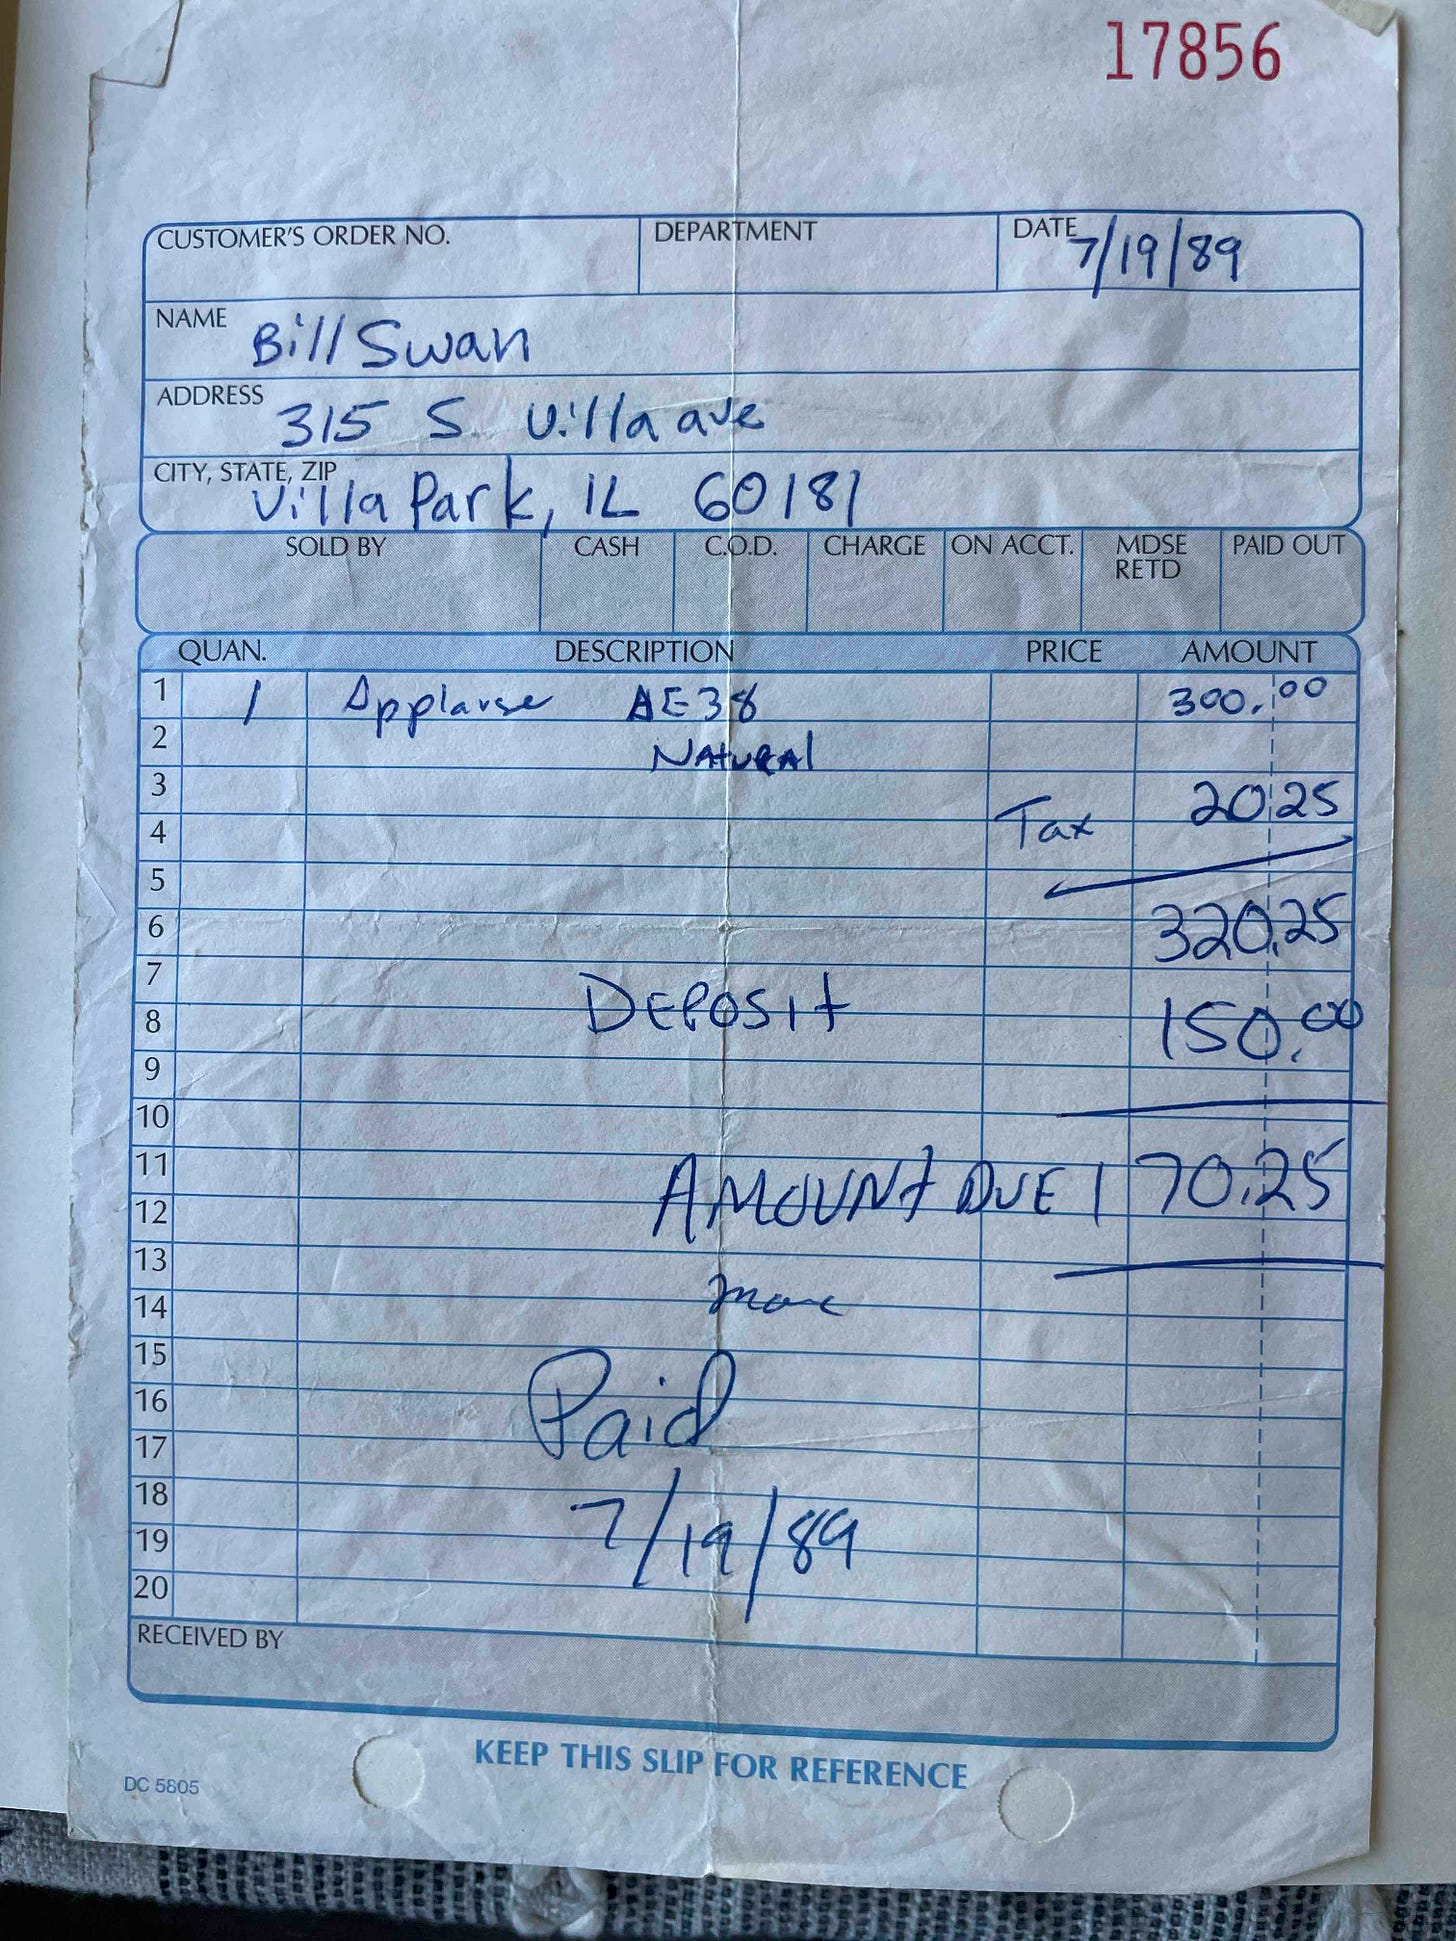 17856
CUSTOMER'S ORDER NO. DEPARTMENT DATE 7/19/89
NAME Bill Swan
ADDRESS 315 S. Villa ave
CITY, STATE, ZIP Villa Park, IL 60181
SOLD BY CASH C.O.D. CHARGE ON ACCT. MDSE RETD PAID OUT
QUAN. DESCRIPTION PRICE AMOUNT
1 1 Applause AE38 300.00
2 Natural
3 20.25
4 Tax
5
6 320.25
7
8 Deposit 150.00
9
10
11
12 Amount Due 170.25
13
14
15
16 Paid
17
18
19 7/19/89
20
RECEIVED BY
KEEP THIS SLIP FOR REFERENCE
DC 5805